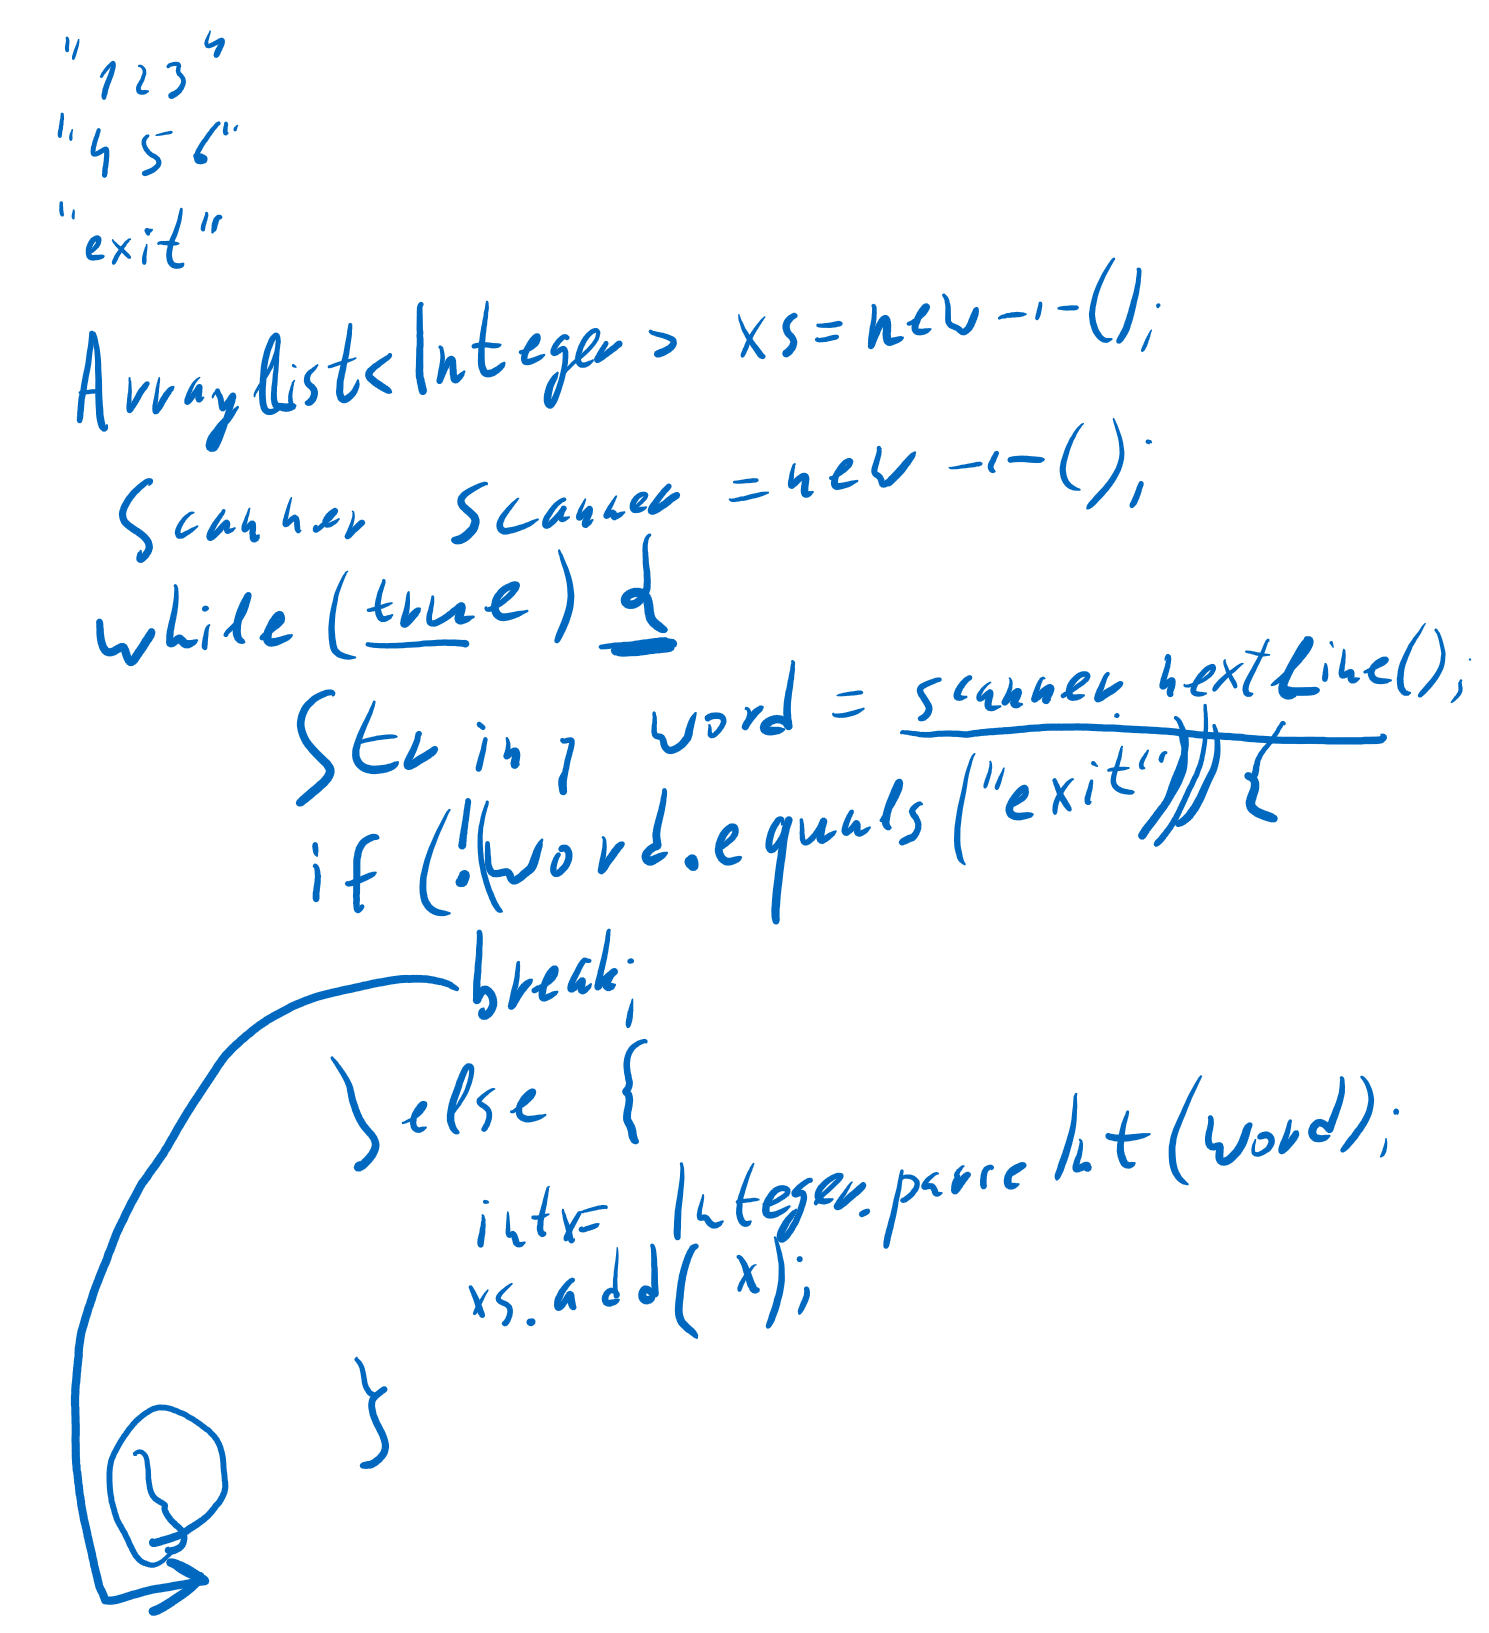 "123"
"456"
"exit"
ArrayList<Integer> xs = new -"-();
Scanner scanner = new -"-();
while (true) {
String word = scanner.nextLine();
if (!(word.equals("exit"))) {
break;
} else {
int x = Integer.parseInt(word);
xs.add(x);
}
}